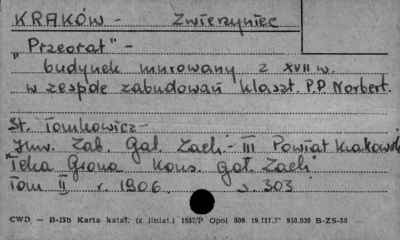 KRAKÓW - Zwierzyniec
"Przeorat" -
budynek murowany z XVII w.
w zespole zabudowań klaszt. P.P Norbert.
St. Tomkowicz -
"Jnw. Zab. Gal. Zach. - III Powiat Krakowski
"Teka Grona Kons. gal. Zach"
Tom II r. 1906. s. 303
CWD. — B-15b Karta katal. (z liniat.) 1957/P Opol 800 19.III.57 950.000 B-ZS-50